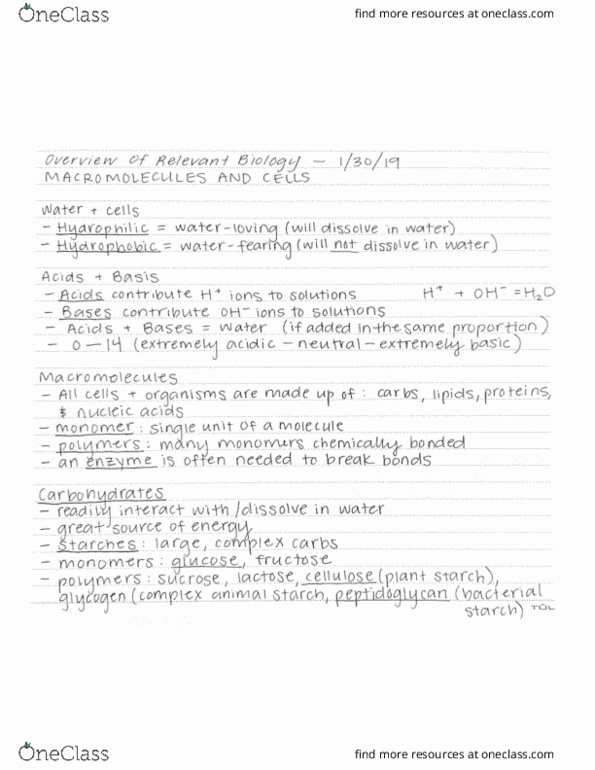 OneClass
find more resources at oneclass.com
Overview of Relevant Biology – 1/30/19
MACROMOLECULES AND CELLS
Water + cells
- Hydrophilic = water-loving (will dissolve in water)
- Hydrophobic = water-fearing (will not dissolve in water)
Acids + Basis
- Acids contribute H⁺ ions to solutions H⁺ + OH⁻ = H₂O
- Bases contribute OH⁻ ions to solutions
- Acids + Bases = water (if added in the same proportion)
- 0–14 (extremely acidic – neutral – extremely basic)
Macromolecules
- All cells + organisms are made up of: carbs, lipids, proteins,
& nucleic acids
- monomer: single unit of a molecule
- polymers: many monomers chemically bonded
- an enzyme is often needed to break bonds
Carbohydrates
- readily interact with/dissolve in water
- great source of energy
- starches: large, complex carbs
- monomers: glucose, fructose
- polymers: sucrose, lactose, cellulose (plant starch),
glycogen (complex animal starch, peptidoglycan (bacterial
starch)
OneClass
find more resources at oneclass.com